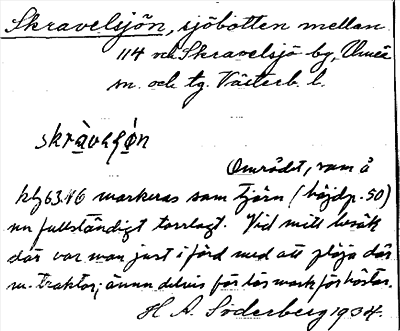 Skravelsjön, sjöbotten mellan
114 och Skravelsjö by, Umeå
sn. och tg. Västerb. l.
Området, som å
kbl 63.46 markeras som tjärn (höjdp. 50)
nu fullständigt torrlagt. Vid mitt besök
där var man just i färd med att plöja där
m. traktor; ännu delvis för lös mark för hästar.
H. A. Söderberg 1934.